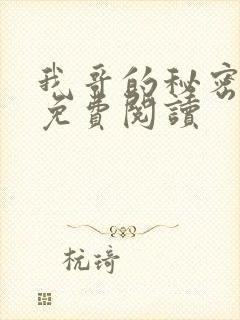 我哥的秘密
免費閱讀
杭琦